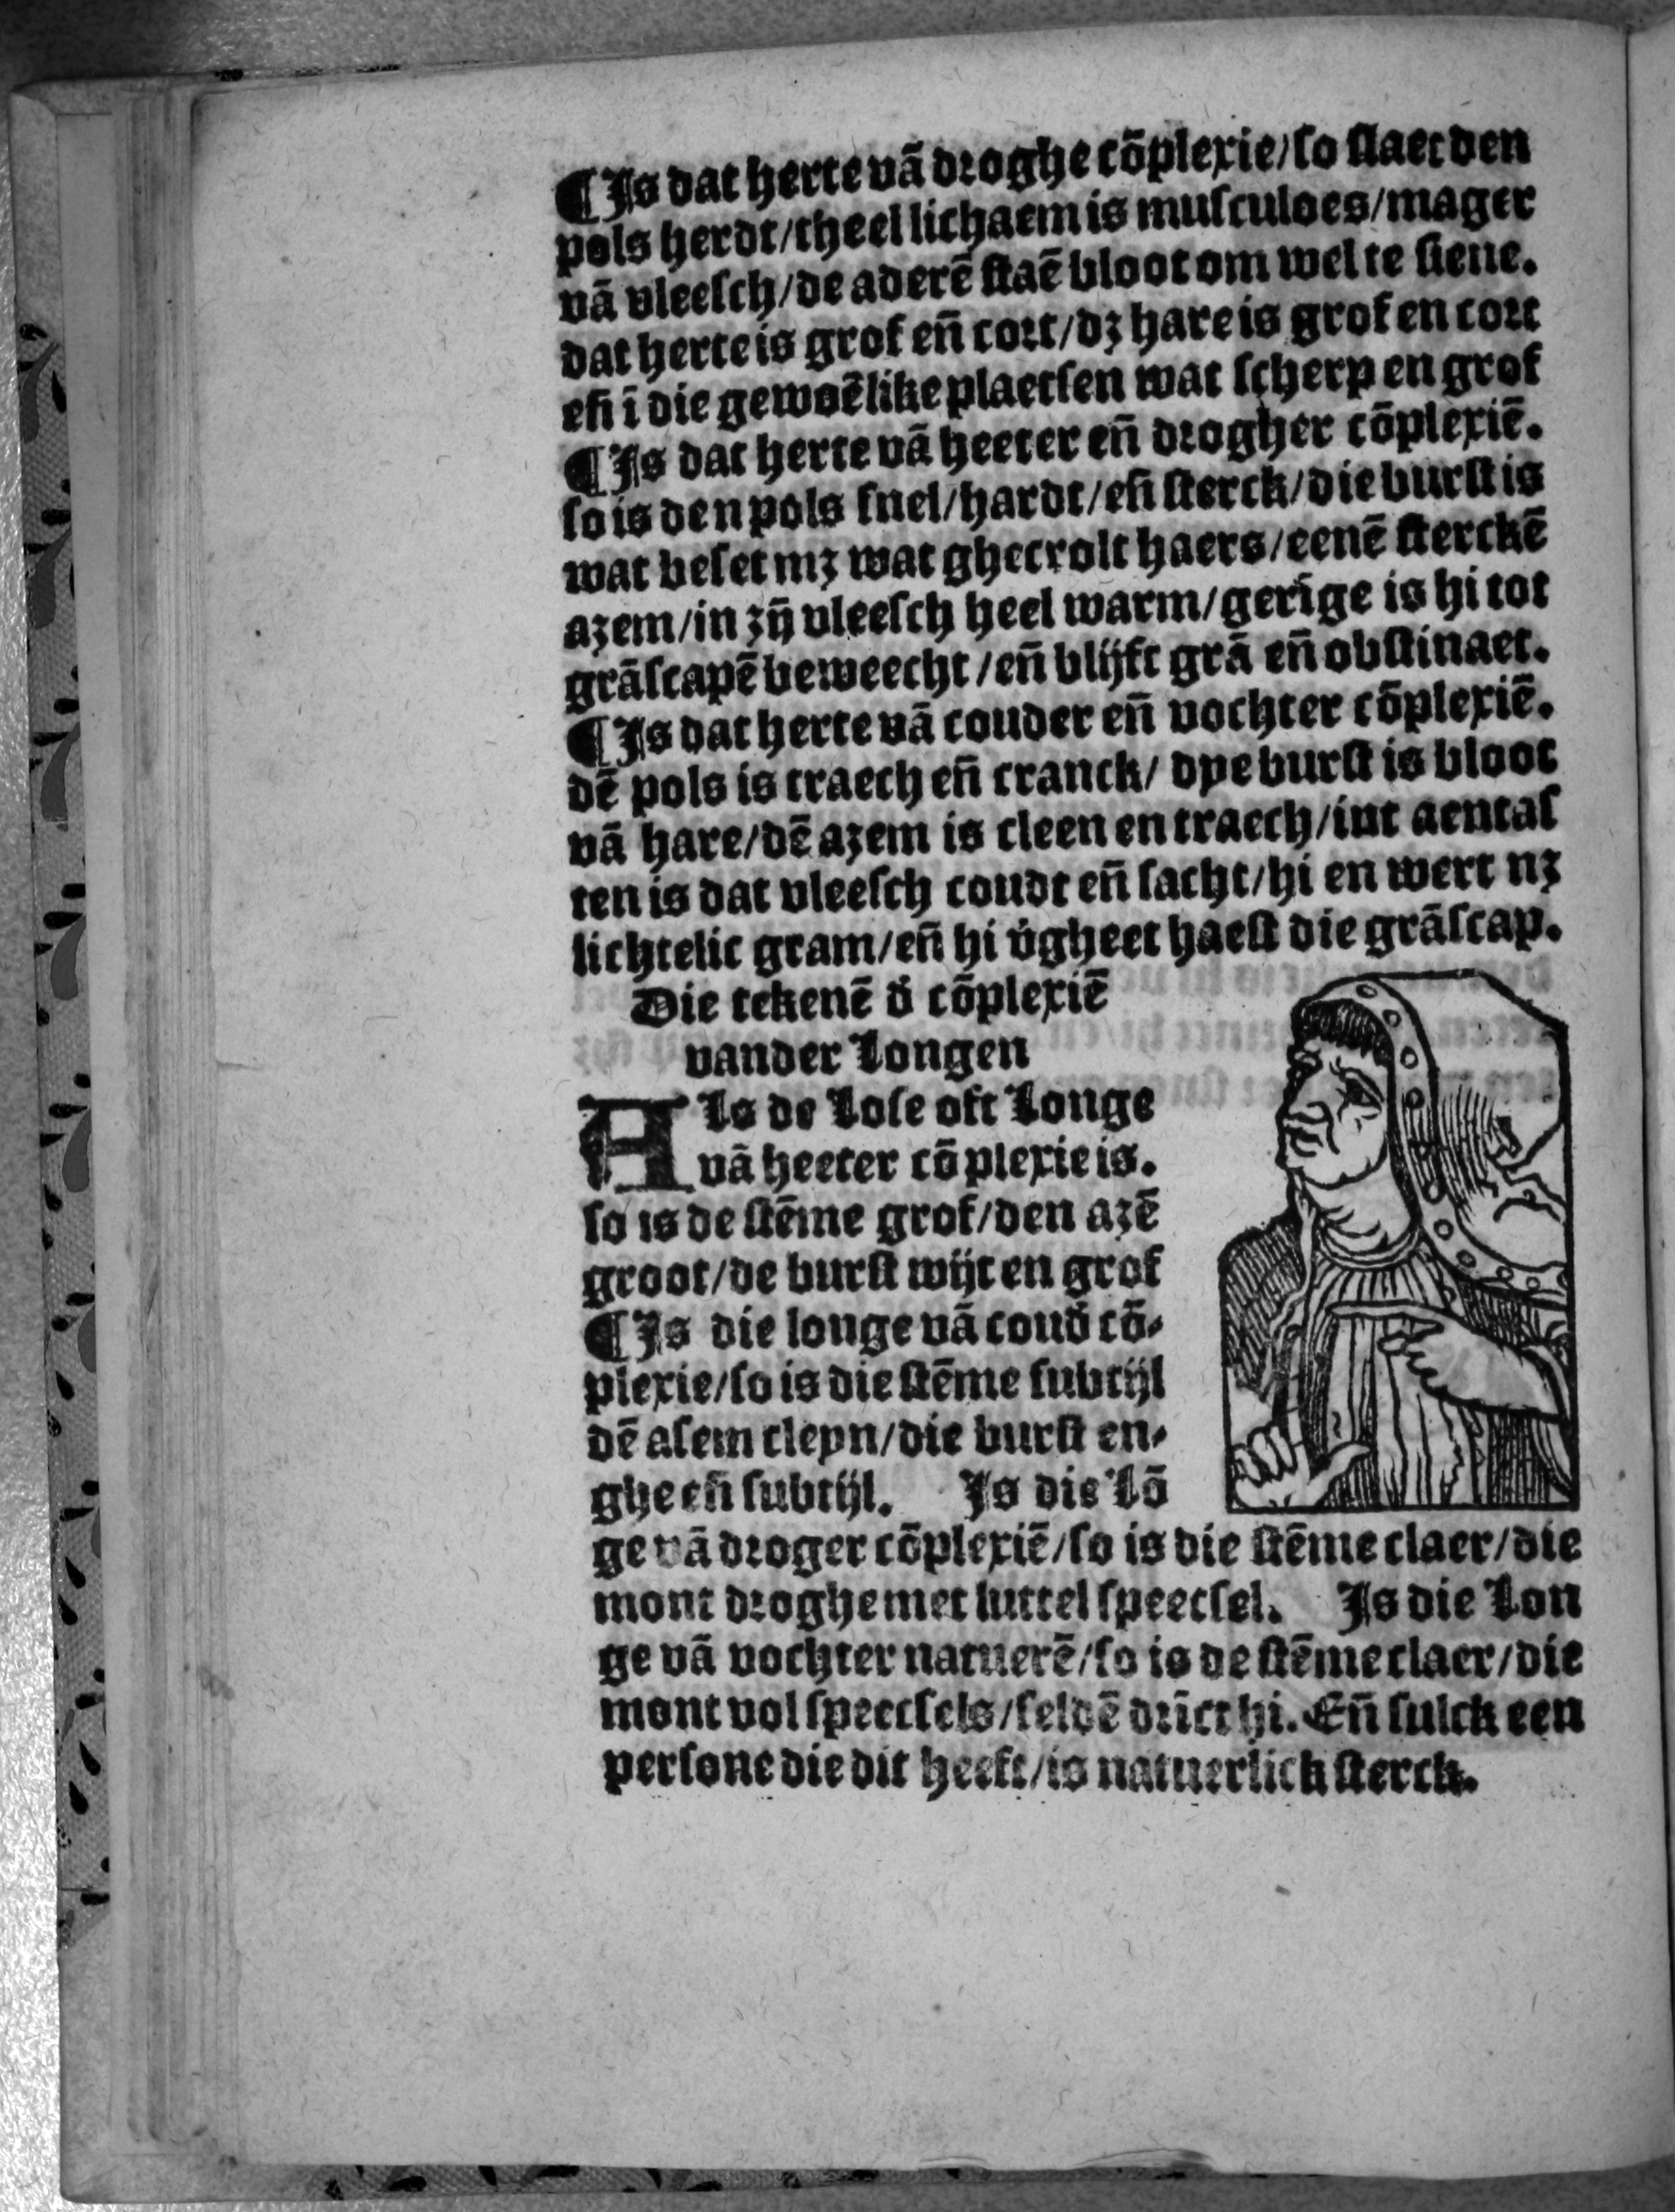 ¶Is dat herte vā droghe cōplexie/so slaet den
pols herdt/theel lichaem is musculoes/mager
vā vleesch/de aderē staē bloot om wel te siene.
dat herte is grof eñ cort/dz hare is grof en cort
eñ ī die gewoēlike plaetsen wat scherp en grof
¶Is dat herte vā heeter eñ drogher cōplexiē.
so is den pols snel/hardt/eñ sterck/die burst is
wat beset mz wat ghecrolt haers/eenē sterckē
azem/in zij̄ vleesch heel warm/gerīge is hi tot
grāscapē beweecht/eñ blijft grā eñ obstinaet.
¶Is dat herte vā couder eñ vochter cōplexiē.
dē pols is traech eñ cranck/ dye burst is bloot
vā hare/dē azem is cleen en traech/int aentas
ten is dat vleesch coudt eñ sacht/hi en wert nz
lichtelic gram/eñ hi v̄gheet haest die grāscap.
Die tekenē d̄ cōplexiē
vander Longen
Als de Lose oft Longe
vā heeter cōplexie is.
so is de stēme grof/den azē
groot/de burst wijt en grof
¶Is die longe vā coud̄ cō-
plexie/so is die stēme subtijl
dē asem cleyn/die burst en-
ghe eñ subtijl. Is die Lō
ge vā droger cōplexiē/so is die stēme claer/die
mont droghe met luttel speecsel. Is die Lon
ge vā vochter natuerē/so is de stēme claer/die
mont vol speecsels/seldē drīct hi. Eñ sulck een
persone die dit heeft/is natuerlick sterck.